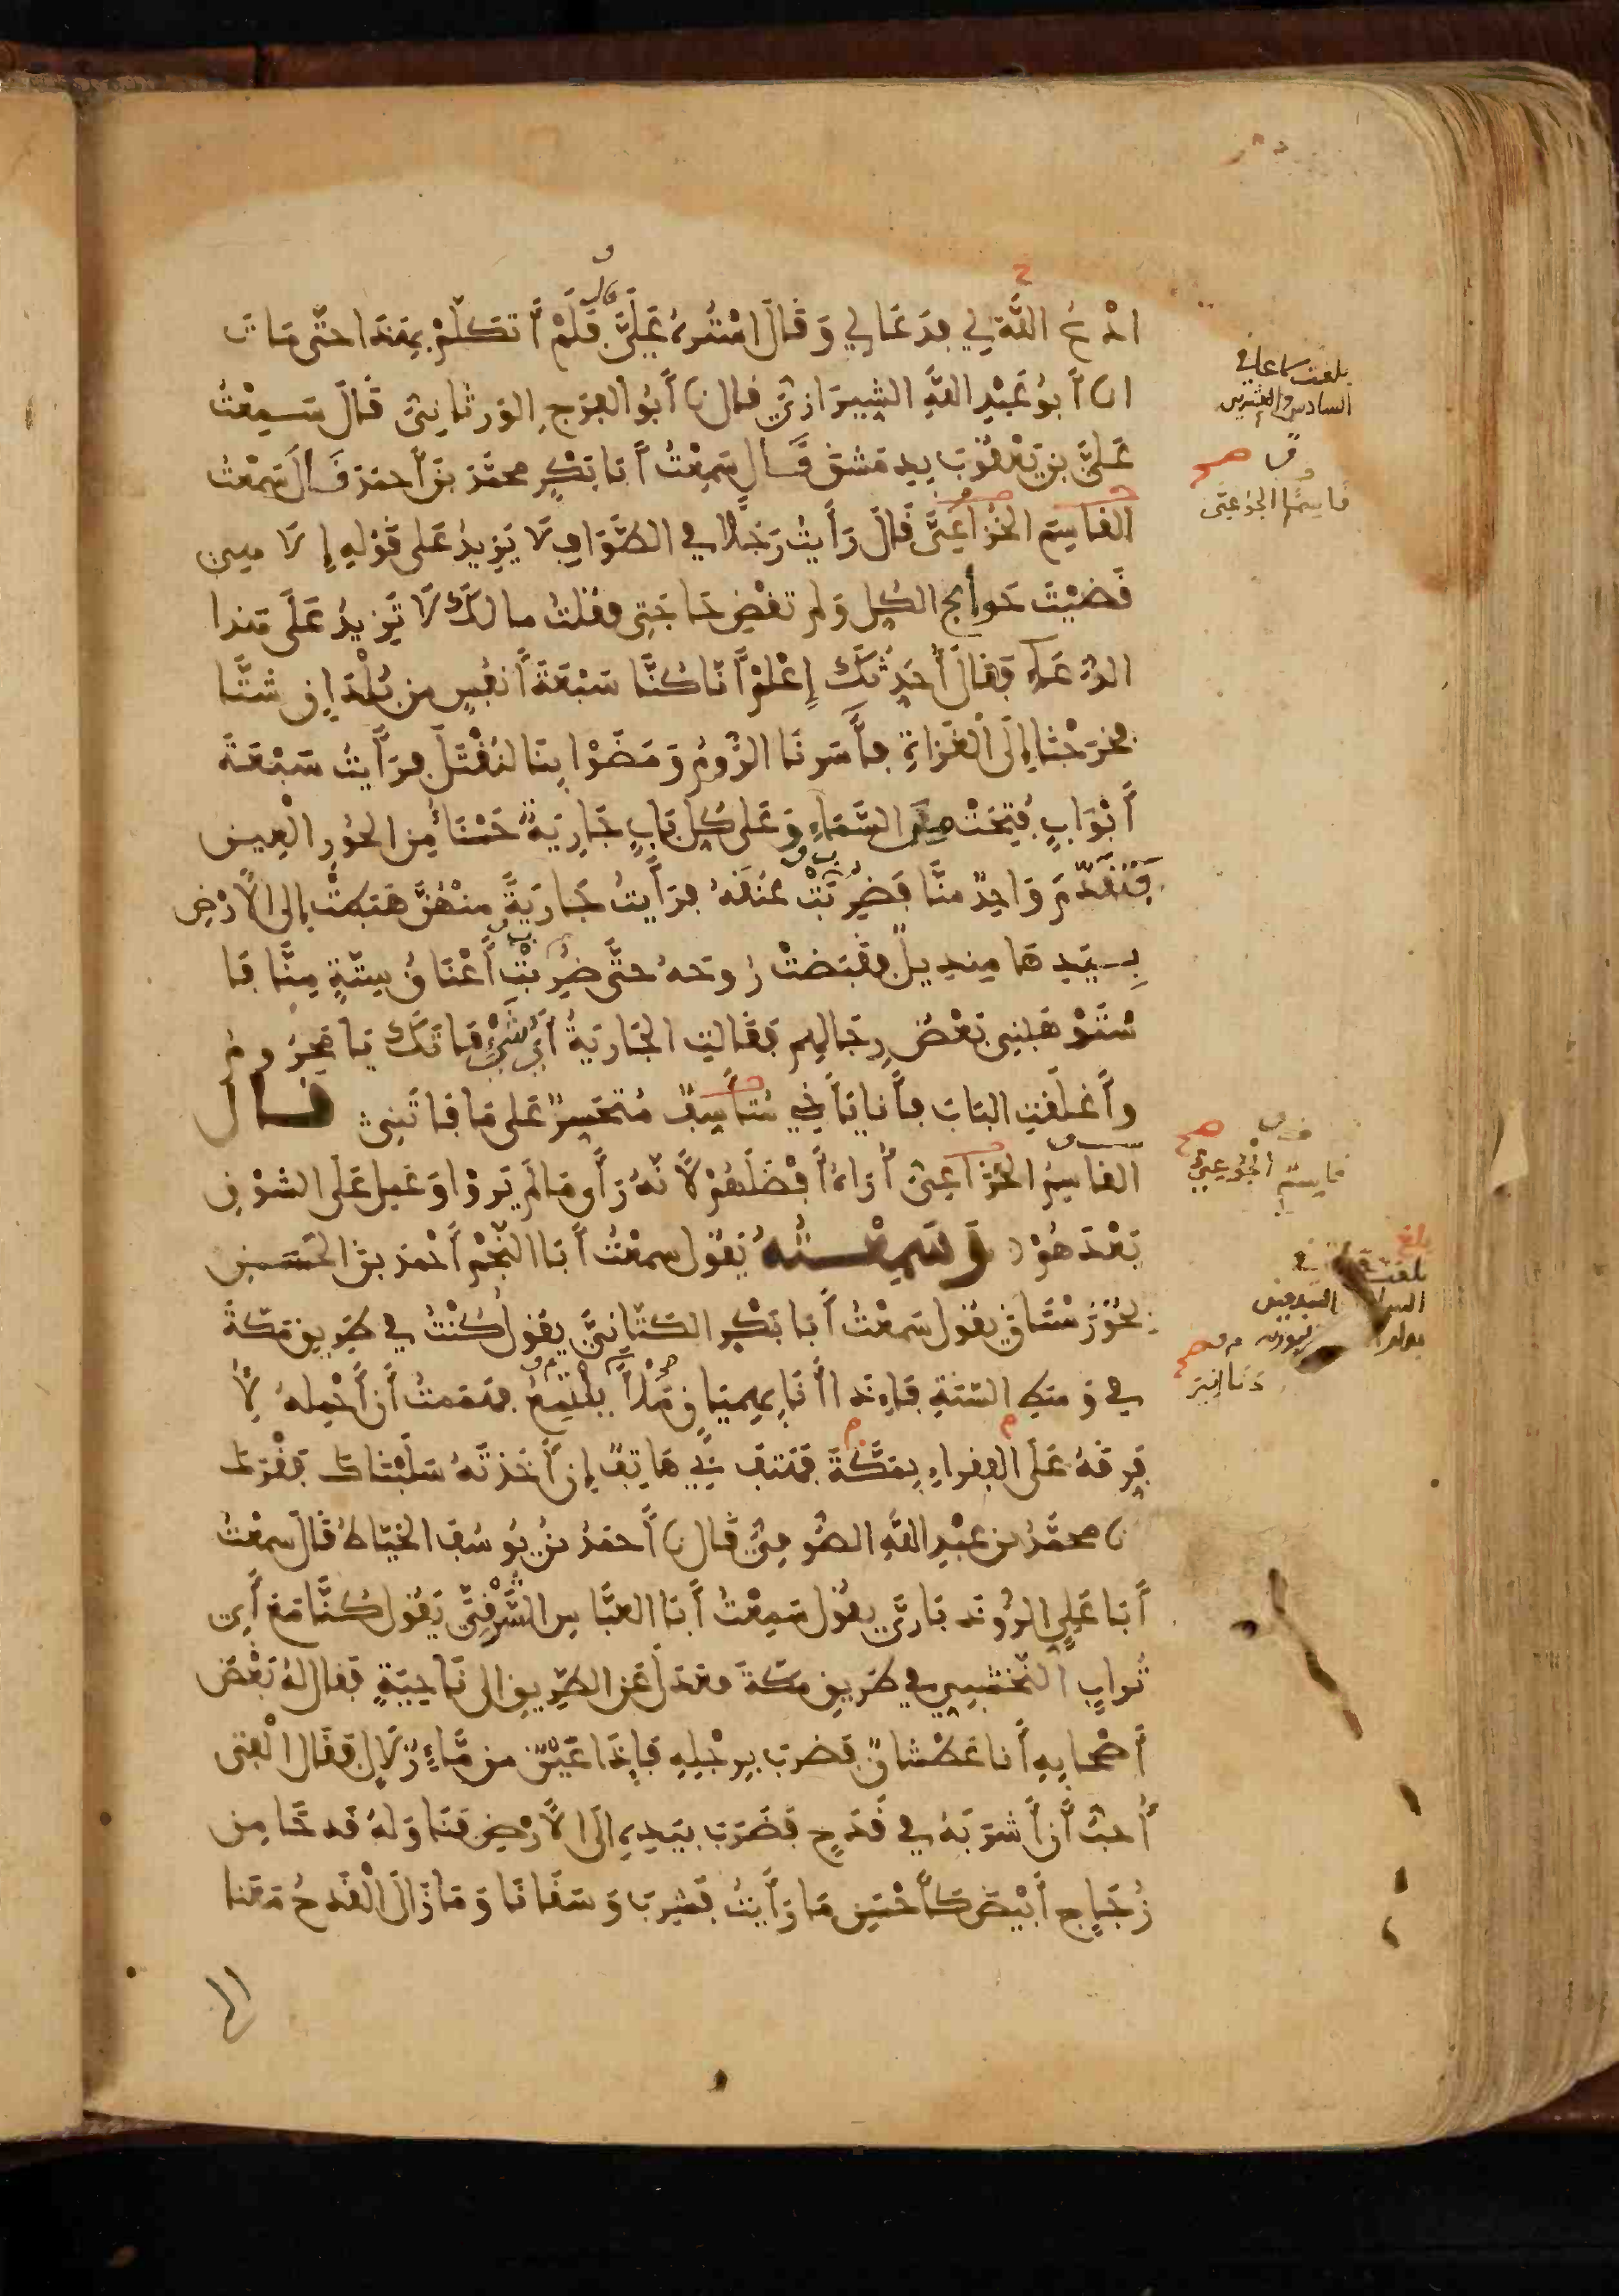 ادْعُ اللَّهَ لِي فَدَعَا لِي وَقَالَ اسْتُرْهُ عَلَيَّ قال فَلَمْ أَتَكَلَّمْ بِهَذَا حَتَّى مَاتَ
انا أَبُو عَبْدِ اللَّهِ الشِّيرَازِيُّ قال نا أَبُو الْفَرَجِ الوَرْثَانِيُّ قَالَ سَمِعْتُ
عَلِيَّ بْنَ يَعْقُوبَ بِدِمَشْقَ قَالَ سَمِعْتُ أَبَا بَكْرٍ مُحَمَّدَ بْنَ أَحْمَدَ قَالَ سَمِعْتُ
القَاسِمَ الخُزَاعِيَّ قَالَ رَأَيْتُ رَجُلًا فِي الطَّوَافِ لَا يَزِيدُ عَلَى قَوْلِهِ إِلَاهِي
قَضَيْتَ حَوَائِجَ الكُلِّ وَلَم تَقْضِ حَاجَتِي فقُلْتُ مَا لَكَ لَا تَزِيدُ عَلَى هَذَا
الدُّعَاءِ فَقَالَ أُحَدِّثُكَ إِعْلَمْ أَنَّا كُنَّا سَبْعَةَ أَنْفُسٍ مِنْ بُلْدَانٍ شَتَّى
فخَرَجْنَا إِلَى الْغَزَاةِ فَأَسَرَنَا الرُّومُ وَمَضَوْا بِنَا لِنُقْتَلَ فَرَأَيْتُ سَبْعَةَ
أَبْوَابٍ فُتِحَتْ مِنَ السَّمَاءِ وَعَلَى كُلِّ بَابٍ جَارِيَةٌ حَسْنَاءُ مِنَ الحُورِ الْعِينِ
فَتَقَدَّمَ وَاحِدٌ مِنَّا فَضُرِبَتْ عُنُقُهُ فَرَأَيْتُ جَارِيَةً مِنْهُنَّ هَبَطَتْ إِلَى الْأَرْضِ
بِيَدِهَا مِنْدِيلٌ فقَبَضَتْ رُوحَهُ حَتَّى ضُرِبَتْ أَعْنَاقُ سِتَّةٍ مِنَّا فَا
سْتَوْهَبَنِي بَعْضُ رِجَالِهِم فَقَالَتِ الجَارِيَةُ أَيُّ شَيْءٍ فَاتَكَ يَا مَحْرُومُ
وَأَغْلَقَتِ البَابَ فَأَنَا يَا أَخِي مُتَأَسِّفٌ مُتَحَسِّرٌ عَلَى مَا فَاتَنِي قَالَ
القَاسِمُ الخُزَاعِيُّ أُرَاهُ أَفْضَلَهُمْ لِأَنَّهُ رَأَى مَا لَمْ يَرَوْا وَعَمِلَ عَلَى الشَّوْقِ
بَعْدَهُمْ وَسَمِعْتُهُ يَقُولُ سَمِعْتُ أَبَا النَّجْمِ أَحْمَدَ بْنَ الحُسَيْنِ
بخُوزِسْتَانَ يَقُولُ سَمِعْتُ أَبَا بَكْرٍ الكَتَّانِيَّ يقُولُ كُنْتُ فِي طَرِيقِ مَكَّةَ
فِي وَسَطِ السَّنَةِ فَإِذَا أَنَا بِهِمْيَانٍ مَلْآنَ يَلْتَمِعُ فهَمَمْتُ أَنْ أَحْمِلَهُ لِأُ
فَرِّقَهُ عَلَى الفُقَرَاءِ بِمَكَّةَ فهَتَفَ بِي هَاتِفٌ إِنْ أَخَذْتَهُ سَلَبْنَاكَ فَقْرَكَ
نا مُحَمَّدُ بْنُ عَبْدِ اللَّهِ الصُّوفِيُّ قال نا أَحْمَدُ بْنُ يُوسُفَ الخَيَّاطُ قَالَ سَمِعْتُ
أَبَا عَلِيٍّ الرُّوذَبَارِيَّ يقُولُ سَمِعْتُ أَبَا العَبَّاسِ الشَّرْقِيَّ يَقُولُ كُنَّا مَعَ أَبِي
تُرَابٍ النَّخْشَبِيِّ فِي طَرِيقِ مَكَّةَ فعَدَلَ عَنِ الطَّرِيقِ إِلَى نَاحِيَةٍ فَقَالَ لَهُ بَعْضُ
أَصْحَابِهِ أَنَا عَطْشَانٌ فَضَرَبَ بِرِجْلِهِ فَإِذَا عَيْنٌ مِنْ مَاءٍ زُلَالٍ فَقَالَ الْفَتَى
أُحِبُّ أَنْ أَشْرَبَهُ فِي قَدَحٍ فَضَرَبَ بِيَدِهِ إِلَى الْأَرْضِ فَنَاوَلَهُ قَدَحًا مِنْ
زُجَاجٍ أَبْيَضَ كَأَحْسَنِ مَا رَأَيْتُ فَشَرِبَ وَسَقَانَا وَمَا زَالَ الْقَدَحُ مَعَنَا
الى
بلغت سماعا في
السادس والعشرين
قاسِمًا الخُزاعِيّ صح
قاسِم الخُزاعِيّ صح
بلغ
بلغت
دنانير صح